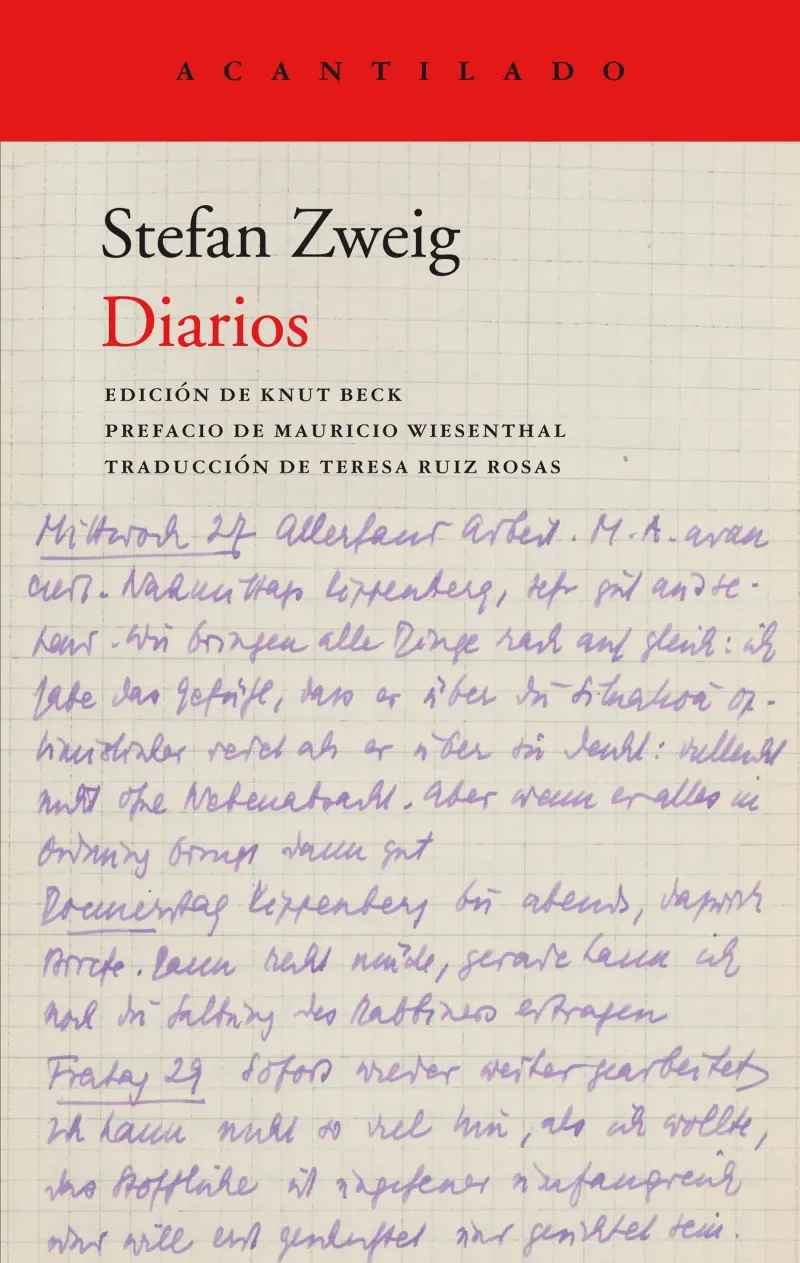 ACANTILADO
Stefan Zweig
Diarios
EDICIÓN DE KNUT BECK
PREFACIO DE MAURICIO WIESENTHAL
TRADUCCIÓN DE TERESA RUIZ ROSAS
Mittwoch 27 Allerhand Arbeit. M. A. avan
ciert. Nachmittags Kippenberg, sehr gut
Wir bringen alle Dinge rasch auf gleich: ich
habe das Gefühl, dass er über die Situation op-
timistischer redet als er über sie denkt: vielleicht
nicht ohne Nebenabsicht. Aber wenn er alles in
Ordnung bringt dann gut
Donnerstag Kippenberg bis abends,
Briefe. Dann recht müde, gerade kann ich
noch die des Rabbiners ertragen
Freitag 29 Sofort wieder weitergearbeitet
Ich kann nicht so viel hin, als ich wollte,
das Stoffliche ist ungeheuer umfangreich
und will erst und gesichtet sein.